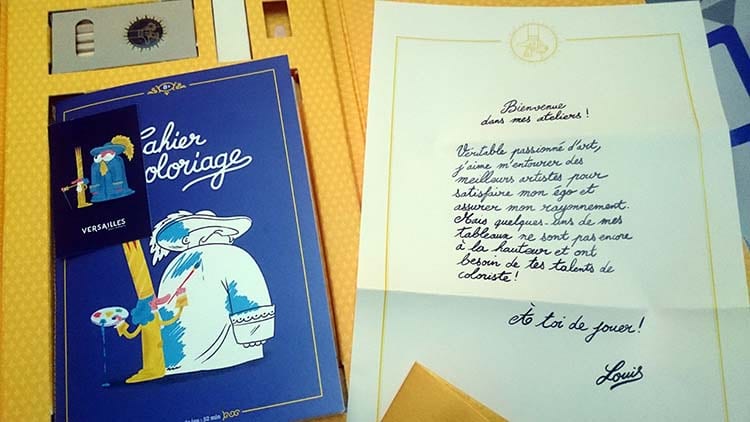 8+
Cahier
Coloriage
VERSAILLES
32 min
Bienvenue
dans mes ateliers !
Veritable passionné d'art,
j'aime m'entourer des
meilleurs artistes pour
satisfaire mon égo et
assurer mon rayonnement.
Mais quelques-uns de mes
tableaux ne sont pas encore
à la hauteur et ont
besoin de tes talents de
coloriste !
À toi de jouer !
Louis